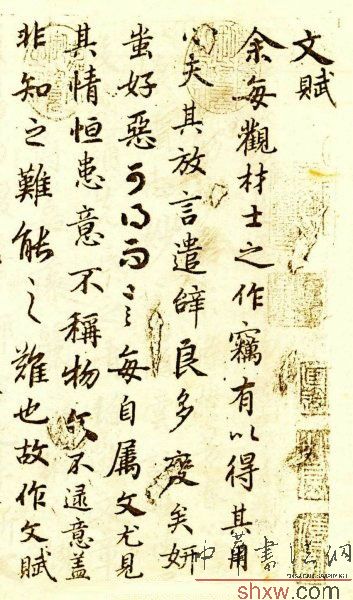 文賦
余每觀材士之作竊有以得其用
心夫其放言遣辝良多變矣妍
蚩好惡可得而言每自属文尤見
其情恒患意不稱物文不逮意蓋
非知之難能之難也故作文賦
中華書法网
shxw.com